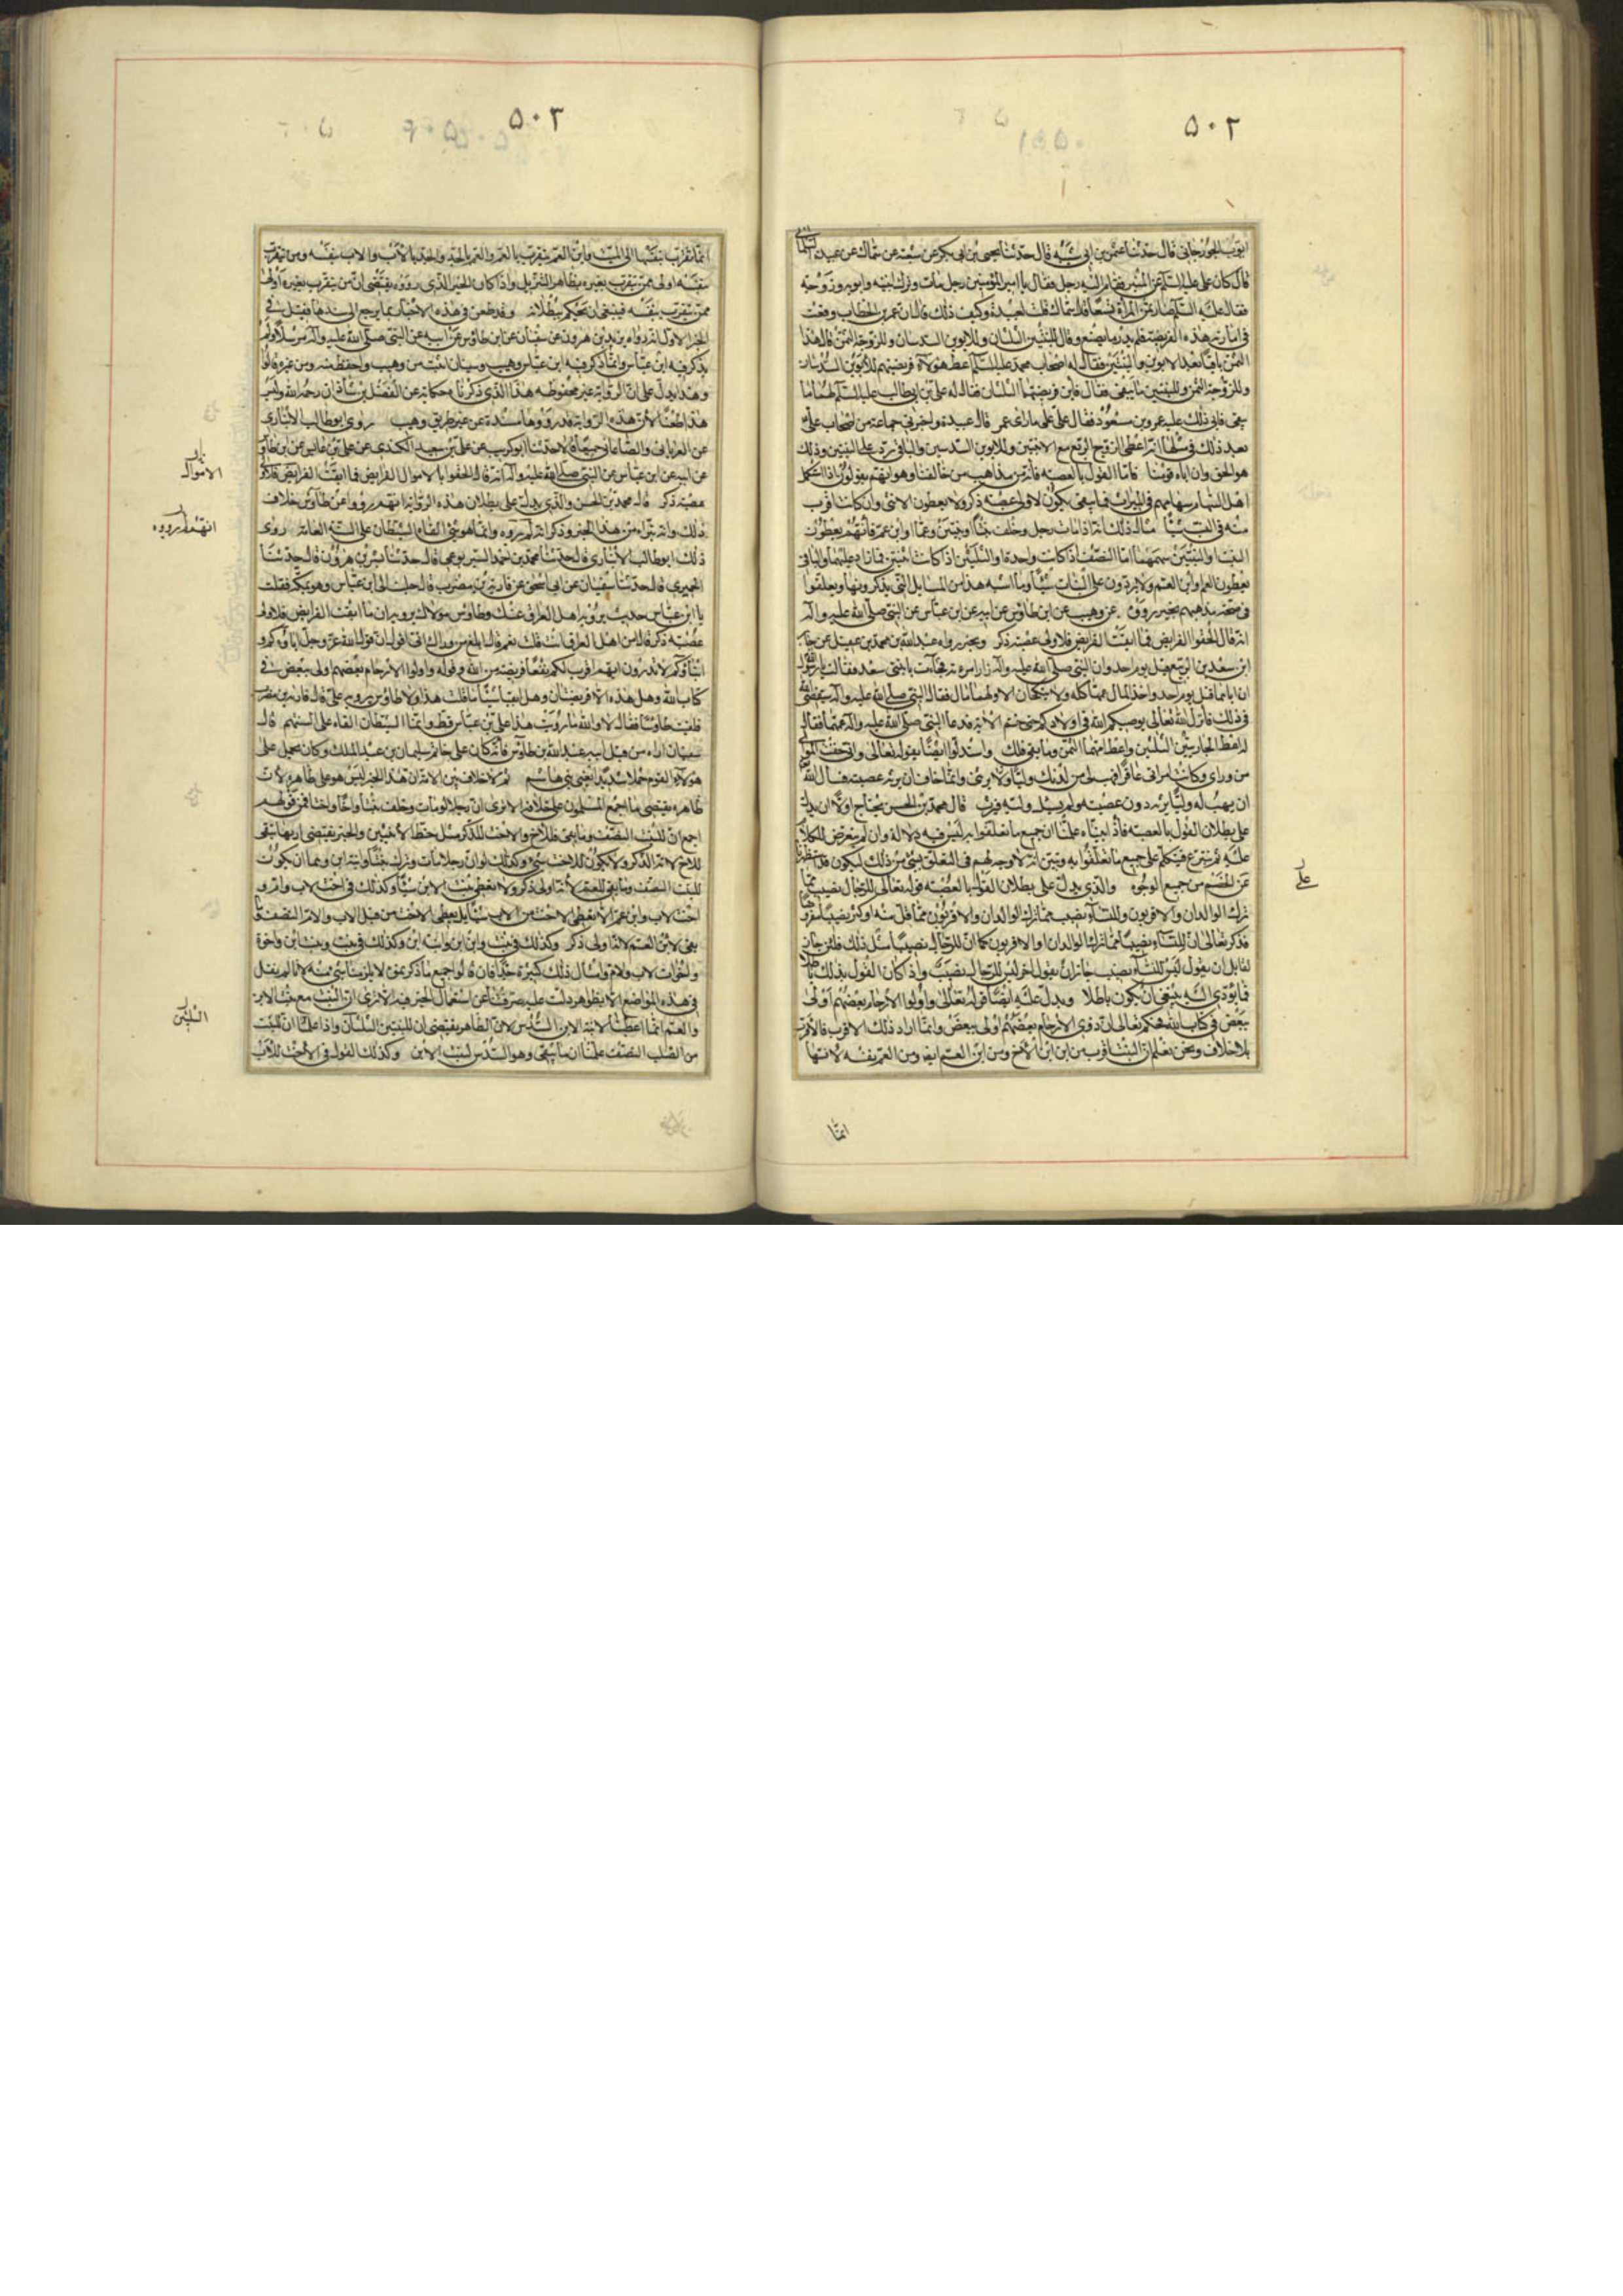 ۵۰۲
ايوب الجوزجاني قال حدثنا عثمان بن ابي شيبه قال حدثنا يحيى بن ابي بكر عن شعبه عن سماك عن عبيدة السلماني
قال كان علي عليه السلم على المنبر فقام اليه رجل فقال يا امير المؤمنين رجل مات وترك ابنتيه وابويه وزوجة
فقال عليه السلم صار ثمن المرأة تسعا قال سماك قلت لعبيدة وكيف ذلك قال ان عمر بن الخطاب وقعت
في امارته هذه الفريضة فلم يدر ما يصنع وقال للبنتين الثلثان وللابوين السدسان وللزوجة الثمن قال هذا
الثمن باقيا بعد الابوين والبنتين فقال له اصحاب محمد عليه السلم اعط هؤلاء فريضتهم للابوين السدسان
وللزوجة الثمن وللبنتين ما يبقى فقال فاين فريضتهما الثلثان فقال له علي بن ابي طالب عليه السلم لهما ما
يبقى فابى ذلك عليه عمر وبن مسعود فقال علي على ما راى عمر قال عبيدة واخبرني جماعة من اصحاب علي
بعد ذلك في مثلها انه اعطى الزوج الربع مع الابنتين وللابوين السدسين والباقي رد على البنتين وذلك
هو الحق وان اباه قومنا فاما القول بالعصبه فانه من مذاهب من خالفنا وهو انهم يقولون اذا استكمل
اهل السهام سهامهم في الميراث فما يبقى يكون لاولي عصبة ذكر ولا يعطون الانثى وان كانت اقرب
منه في النسب شيئا مثال ذلك انه اذا مات رجل وخلف بنتا او بنتين وعما او ابن عم فانهم يعطون
البنت او البنتين سهمهما اما النصف اذا كانت واحدة والثلثين اذا كانت اثنتين فما زاد عليهما والباقي
يعطون العم او ابن العم ولا يردون على البنات شيئا وما اشبه هذا من المسايل التي يذكرونها ويعلقوا
في صحة مذهبهم بخبر رووه عن وهيب عن ابن طاوس عن ابيه عن ابن عباس عن النبي صلى الله عليه واله
انه قال الحقوا الفرايض فما ابقت الفرايض فلاولى عصبة ذكر وبخبر رواه عبد الله بن محمد بن عقيل عن جابر
ان سعد بن الربيع قتل يوم احد وان النبي صلى الله عليه واله زار امراته فجاءت بابنتي سعد فقالت يا رسول الله
ان اباهما قتل يوم احد واخذ المال عمهما كله ولا ينكحان الا ولهما مال فقال النبي صلى الله عليه واله سيقضي الله
في ذلك فانزل الله تعالى يوصيكم الله في اولادكم حتى ختم الاية فدعا النبي صلى الله عليه واله عمهما فقال
له اعط الجاريتين الثلثين واعط امهما الثمن وما بقي فلك واستدلوا ايضا بقوله تعالى واني خفت الموالي
من وراى وكانت امراتي عاقرا فهب لي من لدنك وليا يرثني وانما خاف ان يرثه عصبته فسال الله
ان يهب له وليا يرثه دون عصبته ولم يسئل ولية فيرث قال محمد بن الحسن يحتاج اولا ان يدل
على بطلان القول بالعصبه فاذا بيناه علمنا ان جميع ما تعلقوا به ليس فيه دلالة وان لم نعرض للكلام
عليه ثم نشرع فنتكلم على جميع ما تعلقوا به ونبين انه لا وجه لهم في التعلق بشي من ذلك ليكون قد استظهرنا
على الخصم من جميع الوجوه والذي يدل على بطلان القول بالعصبة قوله تعالى للرجال نصيب مما
ترك الوالدان والاقربون وللنساء نصيب مما ترك الوالدان والاقربون مما قل منه او كثر نصيبا مفروضا
فذكر تعالى ان للنساء نصيبا مما ترك الوالدان والاقربون كما ان للرجال نصيبا مثل ذلك فلئن جاز
لقايل ان يقول ليس للنساء نصيب جاز ان يقول اخر ليس للرجال نصيب واذا كان القول بذلك باطلا
فما يؤدي اليه ينبغي ان يكون باطلا ويدل عليه ايضا قوله تعالى واولوا الارحام بعضهم اولى
ببعض في كتاب الله فحكم تعالى ان ذوي الارحام بعضهم اولى ببعض وانما اراد ذلك الاقرب فالاقرب
بلا خلاف ونحن نعلم ان البنت اقرب من ابن ابن الاخ ومن ابن العم ايضا ومن العم نفسه لانها
انما
على
۵۰۳
انما تقرب بنفسها الى الميت وابن العم يتقرب بالعم والعم بالجد والجد بالاب والاب بنفسه ومن تقرب
بنفسه اولى ممن يتقرب بغيره بظاهر التنزيل واذا كان الخبر الذي رووه يقتضي ان من يتقرب بغيره اولى
ممن يتقرب بنفسه فينبغي ان نحكم ببطلانه وقد طعن في هذه الاخبار بما يرجع الى سندها فقيل في
الخبر الاول انه رواه يزيد بن هرون عن سفيان عن ابن طاوس عن ابيه عن النبي صلى الله عليه واله مرسلا ولم
يذكر فيه ابن عباس وانما ذكر فيه ابن عباس وهيب وسفيان اثبت من وهيب واحفظ منه ومن غيره قالوا
وهذا يدل على ان الرواية غير محفوظه هذا الذي ذكرناه حكاية عن الفضل بن شاذان رحمه الله وليس
هذا طعنا لان هذه الرواية قد رووها مسندة من غير طريق وهيب روى ابو طالب الانباري
عن الفريابي والصاغاني جميعا قالا حدثنا ابو كريب عن علي بن سعيد الكندي عن علي بن عابس عن ابن طاوس
عن ابيه عن ابن عباس عن النبي صلى الله عليه واله انه قال الحقوا بالاموال الفرايض فما ابقت الفرايض فلاولى
عصبة ذكر قال محمد بن الحسن والذي يدل على بطلان هذه الرواية انهم رووا عن طاوس خلاف
ذلك وانه تبراء من هذا الخبر وذكر انه لم يروه وانما هو شي القاه الشيطان على السنة العامة روى
ذلك ابو طالب الانباري قال حدثنا محمد بن احمد البربري قال حدثنا بشر بن هرون قال حدثنا
الحميري قال حدثنا سفيان عن ابي اسحق عن قارية بن مضرب قال جلست الى ابن عباس وهو بمكة فقلت
يا ابن عباس حديث يرويه اهل العراق عنك وطاوس مولاك يرويه ان ما ابقت الفرايض فلاولى
عصبة ذكر قال امن اهل العراق انت قلت نعم قال ابلغ من وراك اني اقول ان قول الله عز وجل اباؤكم و
ابناؤكم لا تدرون ايهم اقرب لكم نفعا فريضة من الله وقوله واولوا الارحام بعضهم اولى ببعض في
كتاب الله وهل هذه الا فريضتان وهل ابقتا شيئا ما قلت هذا ولا طاوس يرويه علي قال قارية بن مضرب
فلقيت طاوسا فقال لا والله ما رويت هذا على ابن عباس قط وانما الشيطان القاه على السنتهم قال
سفيان اراه من قبل ابنه عبد الله بن طاوس فانه كان على خاتم سليمان بن عبد الملك وكان يحمل على
هؤلاء القوم حملا شديدا يعني بني هاشم ثم لا خلاف بين الامة ان هذا الخبر ليس هو على ظاهره لان
ظاهره يقتضي ما اجمع المسلمون على خلافه الا ترى ان رجلا لو مات وخلف بنتا واخا واختا فمن قولهم
اجمع ان للبنت النصف وما بقي فللاخ والاخت للذكر مثل حظ الانثيين والخبر يقتضي ان ما يبقى
للاخ لانه الذكر ولا يكون للاخت شي وكذلك لو ان رجلا مات وترك بنتا وابنة ابن وعما ان يكون
للبنت النصف وما بقي للعم لانه اولى ذكر ولا تعطى بنت الابن شيئا وكذلك في اخت لاب وام و
اخت لاب وابن عم الا يعطى الاخت من الاب شيئا بل يعطى الاخت من قبل الاب والام النصف وما
بقي لابن العم لانه اولى ذكر وكذلك في بنت وابن ابن وابنة ابن وكذلك في بنت وبنت ابن واخوة
واخوات لاب وام وامثال ذلك كثيرة جدا فان قالوا جميع ما ذكرتموه لا يلزمنا شي منه لانا لم نقل
في هذه المواضع الا بظواهر دلت عليه صرفتنا عن استعمال الخبر فيه الا ترى ان البنت مع بنت الابن
والعم انما اعطينا لابنة الابن السدس لان الظاهر يقتضي ان للبنتين الثلثان واذا علمنا ان للبنت
من الصلب النصف علمنا ان ما يبقى وهو السدس لبنت الابن وكذلك القول في الاخت للاب
الاموال
الثلثين